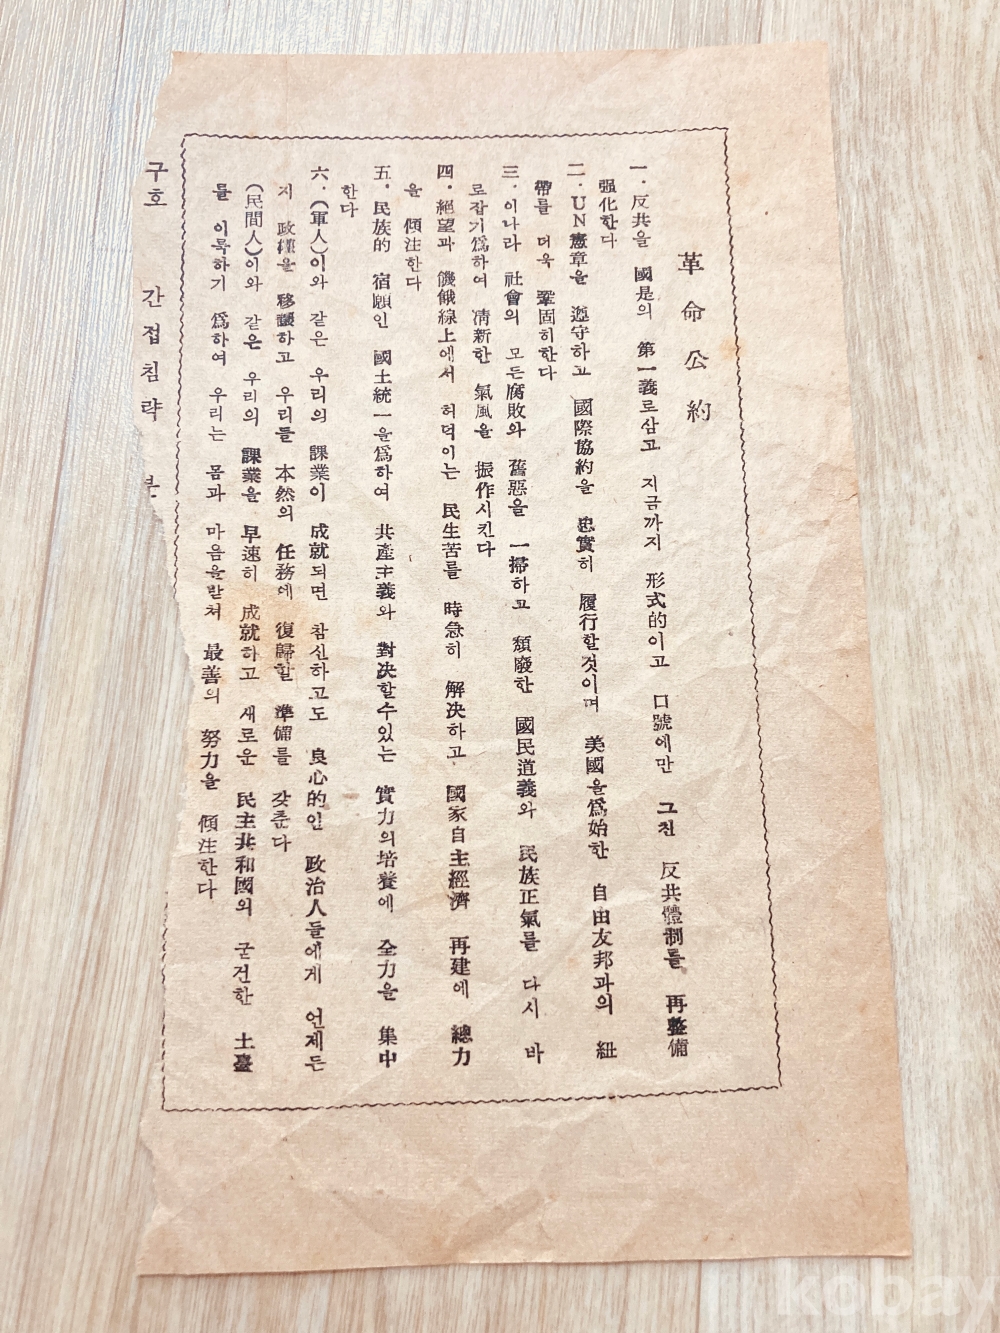 革命公約
一. 反共을 國是의 第一義로삼고 지금까지 形式的이고 口號에만 그친 反共體制를 再整備
强化한다
二. UN憲章을 遵守하고 國際協約을 忠實히 履行할것이며 美國을爲始한 自由友邦과의 紐
帶를 더욱 鞏固히한다
三. 이나라 社會의 모든腐敗와 舊惡을 一掃하고 頹廢한 國民道義와 民族正氣를 다시 바
로잡기爲하여 淸新한 氣風을 振作시킨다
四. 絕望과 饑餓線上에서 허덕이는 民生苦를 時急히 解决하고 國家自主經濟 再建에 總力
을 傾注한다
五. 民族的 宿願인 國土統一을爲하여 共產主義와 對决할수있는 實力의培養에 全力을 集中
한다
六. (軍人)이와 같은 우리의 課業이 成就되면 참신하고도 良心的인 政治人들에게 언제든
지 政權을 移讓하고 우리들 本然의 任務에 復歸할 準備를 갖춘다
(民間人)이와 같은 우리의 課業을 早速히 成就하고 새로운 民主共和國의 굳건한 土臺
를 이룩하기 爲하여 우리는 몸과 마음을받쳐 最善의 努力을 傾注한다
구호 간접침략
kobay